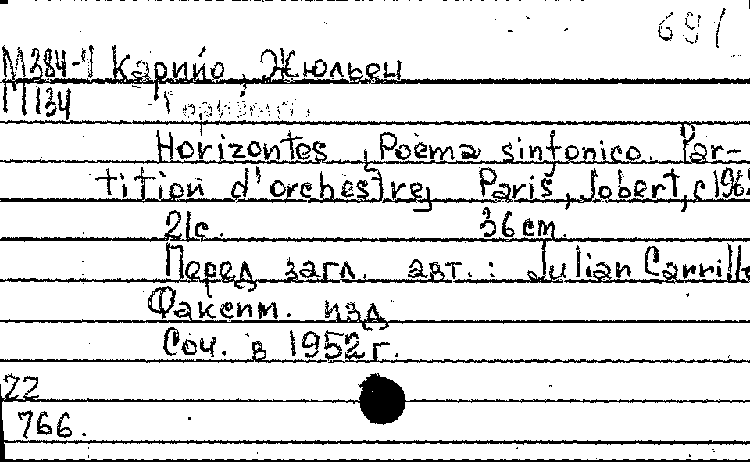 691
М384-4 Карийо, Жюльен
П134 Горизонты.
Horizontes, Poema sinfonico. Par-
tition d'orchestre, Paris, Jobert, c196
21с. 36 см.
Перед загл. авт.: Julian Carrillo
Факсим. изд
Соч. в 1952 г.
22
766.